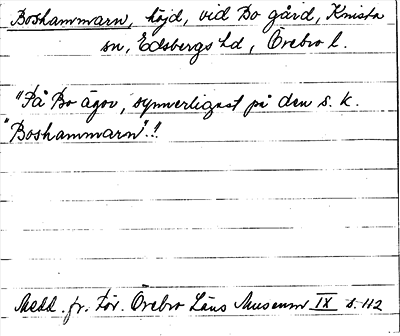 Boshammarn, höjd, vid Bo gård, Knista
sn, Edsbergs hd, Örebro l.
"På Bo ägor, synnerligast på den s. k.
"Boshammarn"."
Medd. fr. För. Örebro Läns Museum IX s. 112